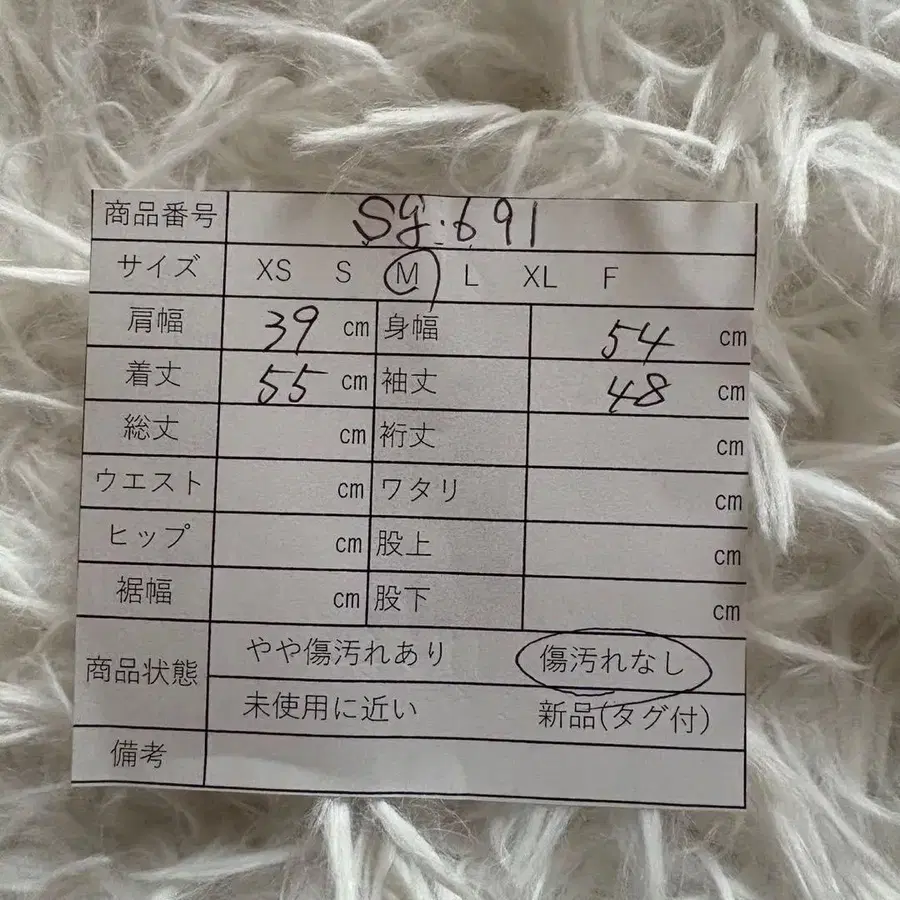 商品番号 Sg:691
サイズ XS S M L XL F
肩幅 39 cm 身幅 54 cm
着丈 55 cm 袖丈 48 cm
総丈 cm 裄丈 cm
ウエスト cm ワタリ cm
ヒップ cm 股上 cm
裾幅 cm 股下 cm
商品状態 やや傷汚れあり 傷汚れなし
未使用に近い 新品(タグ付)
備考